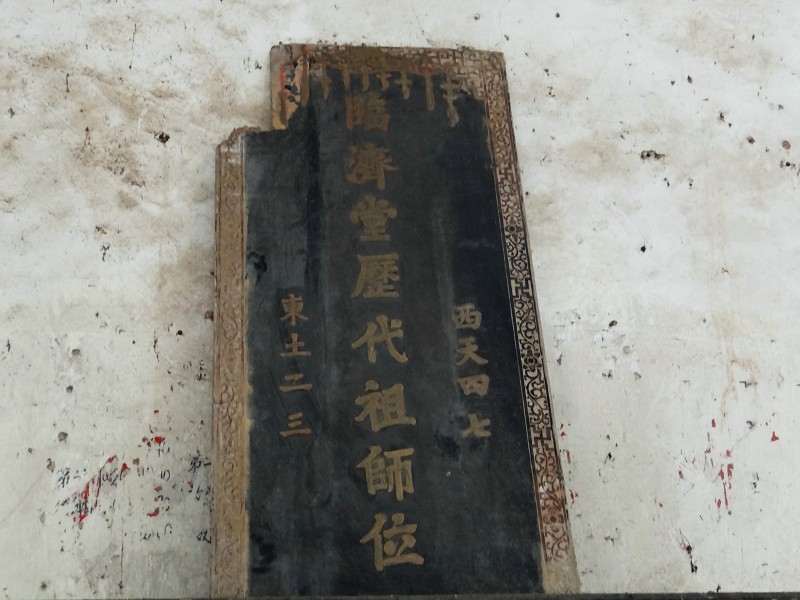 西天四七
臨濟堂歷代祖師位
東土二三